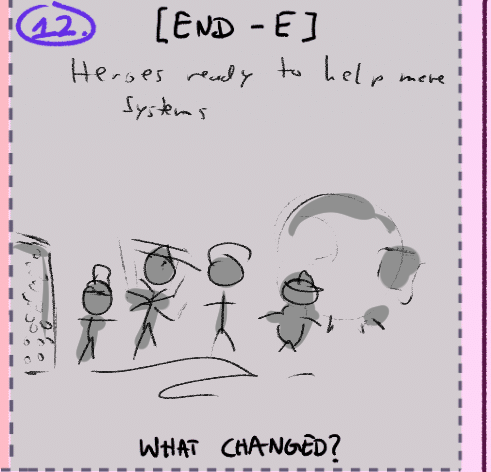 12.
[END - E]
Heroes ready to help more
systems
WHAT CHANGED?